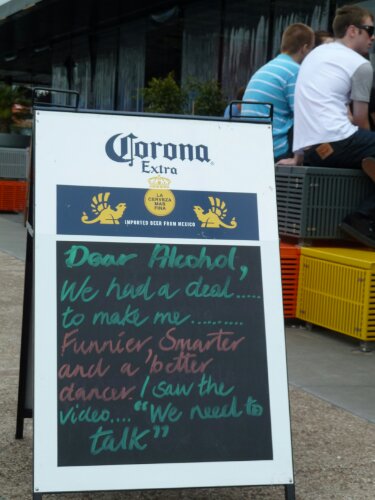 Corona
Extra
LA
CERVEZA
MAS
FINA
IMPORTED BEER FROM MEXICO
Dear Alcohol,
We had a deal.....
to make me..........
Funnier, Smarter
and a better
dancer. I saw the
video...."We need to
talk"